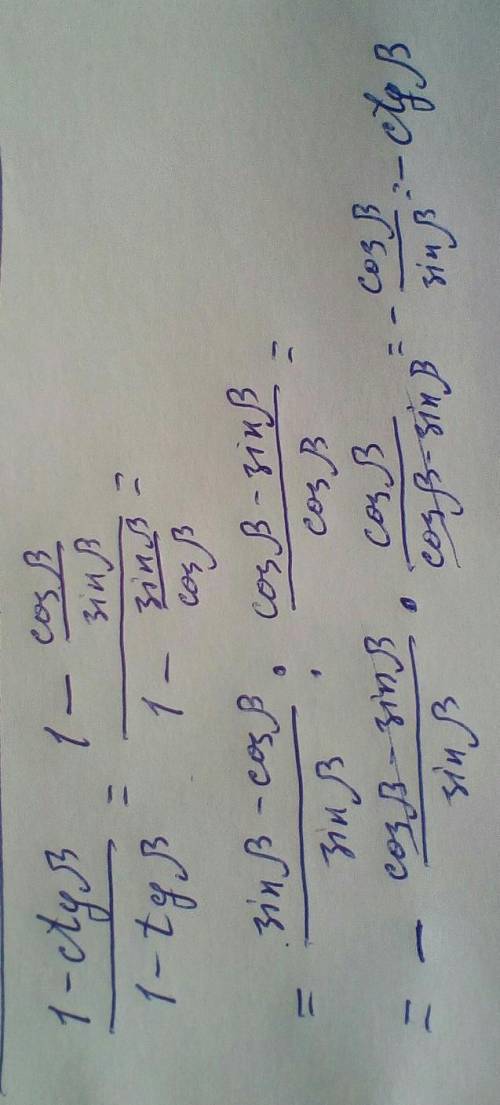 (1 - ctg β)/(1 - tg β) = (1 - cos β/sin β)/(1 - sin β/cos β) =
= (sin β - cos β)/sin β : (cos β - sin β)/cos β =
= - (cos β - sin β)/sin β · cos β/(cos β - sin β) = - cos β/sin β = - ctg β